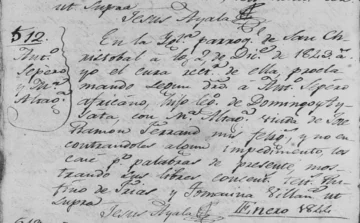 ut Supra
Jesus Ayala
512.
Anto.
Tepero
y Ma.
Altaga.
En la Ygla. parroql. de San Ch
ristobal a 10 a 2 de Dice. de 1843 a.
yo el cura rect. de ella, procla
mando segun dro. a Anto. Tepero
africano, hijo leg. de Domingo y A
gata, con Ma. Altaga. viuda de
Ramon Ferrand mis felig. y no en
contrandoles algun impedimento, los
case pr. palabras de presente, mos
trando sus libres consent. tests. Ru
fino de Frias y Tomasina ut
Supra
Jesus Ayala
Enero 1844